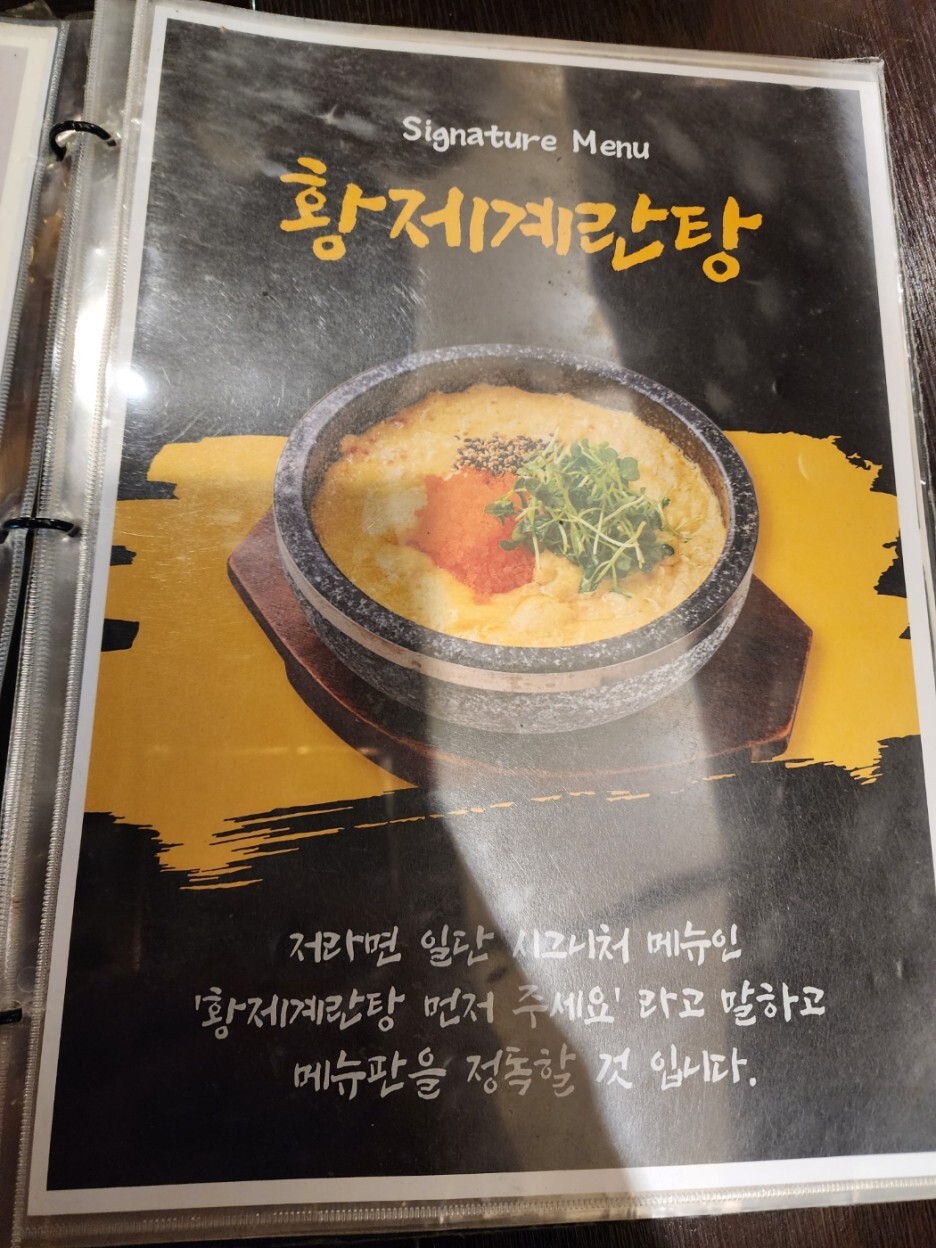 Signature Menu
황제계란탕
저라면 일단 시그니처 메뉴인
'황제계란탕 먼저 주세요' 라고 말하고
메뉴판을 정독할 것 입니다.